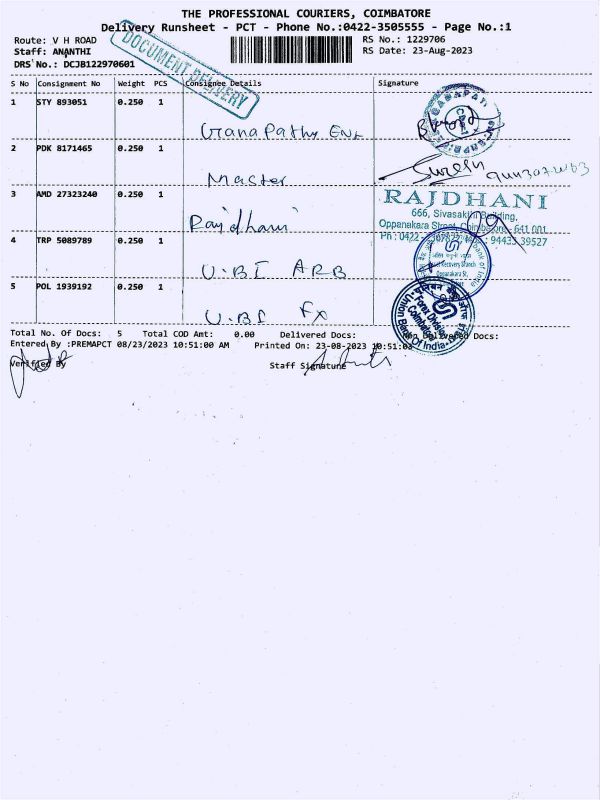 THE PROFESSIONAL COURIERS, COIMBATORE
Delivery Runsheet - PCT - Phone No.:0422-3505555 - Page No.:1
Route: V H ROAD
RS No.: 1229706
Staff: ANANTHI
RS Date: 23-Aug-2023
DRS No.: DCJB122970601
DOCUMENT DELIVERY
S No Consignment No Weight PCS Consignee Details Signature
1 STY 893051 0.250 1
Ganapathy Ent
2 PDK 8171465 0.250 1
Master
Suresh
3 AMD 27323240 0.250 1
Rajdhani
RAJDHANI
666, Sivasakthi Building,
Oppanakara Street, Coimbatore - 641 001
Ph : 0422 94433 39527
4 TRP 5089789 0.250 1
U.B.I ARB
5 POL 1939192 0.250 1
U.B.I FX
Union Bank of India
Forex Division
Total No. Of Docs: 5 Total COD Amt: 0.00 Delivered Docs: Non Delivered Docs:
Entered By :PREMAPCT 08/23/2023 10:51:00 AM Printed On: 23-08-2023 10:51:03
Verified By
Staff Signature